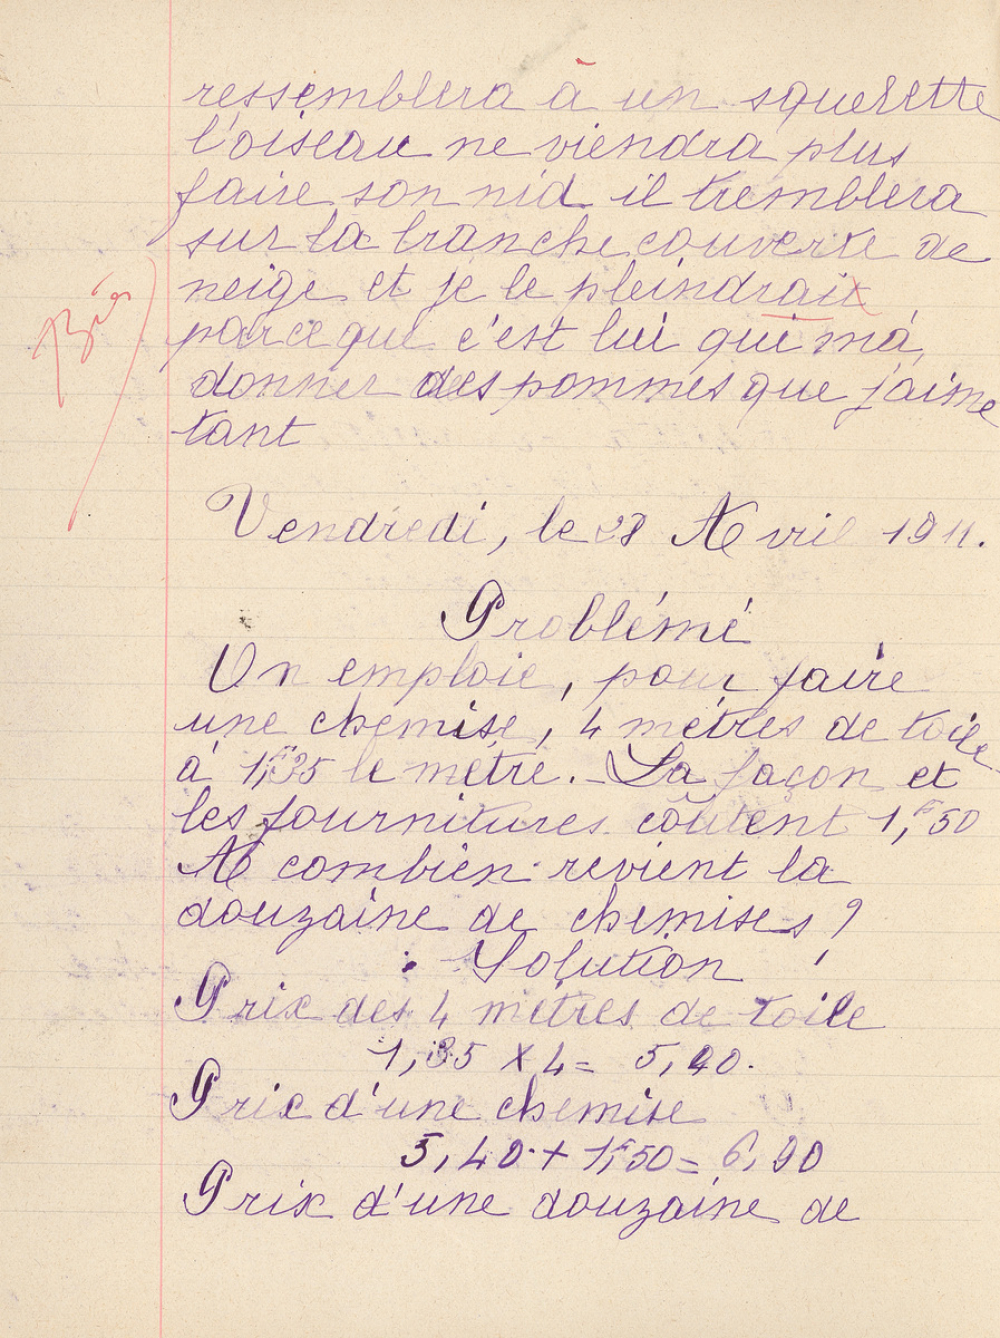 ressemblera à un squelette
l'oiseau ne viendra plus
faire son nid il tremblera
sur la branche couverte de
neige et je le pleindrait
parceque c'est lui qui m'á
donner des pommes que j'aime
tant
Bien
Vendredi, le 28 Avril 1911.
Problémé
On emploie, pour faire
une chemise, 4 mètres de toile
à 1,f35 le mètre. - La façon et
les fournitures coûtent 1,f50
A combien revient la
douzaine de chemises ?
Solution
Prix des 4 mètres de toile
1,35 X 4 = 5,40.
Prix d'une chemise
5,40 + 1,f50 = 6,90
Prix d'une douzaine de